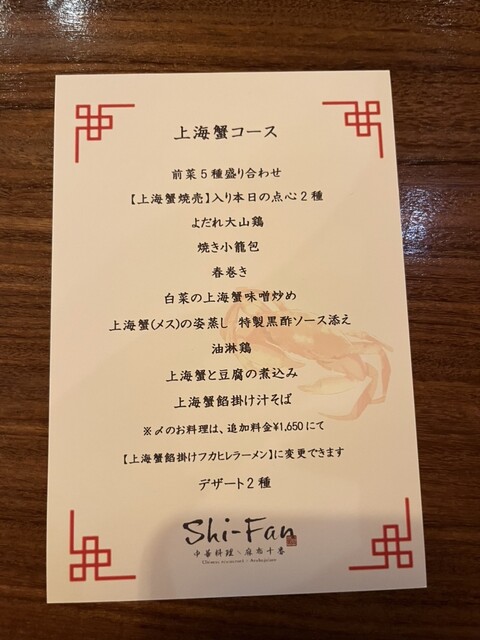 上海蟹コース
前菜5種盛り合わせ
【上海蟹焼売】入り本日の点心2種
よだれ大山鶏
焼き小籠包
春巻き
白菜の上海蟹味噌炒め
上海蟹(メス)の姿蒸し 特製黒酢ソース添え
油淋鶏
上海蟹と豆腐の煮込み
上海蟹餡掛け汁そば
※〆のお料理は、追加料金¥1,650にて
【上海蟹餡掛けフカヒレラーメン】に変更できます
デザート2種
Shi-Fan
中華料理、麻布十番
Chinese restaurant - Azabujyuban